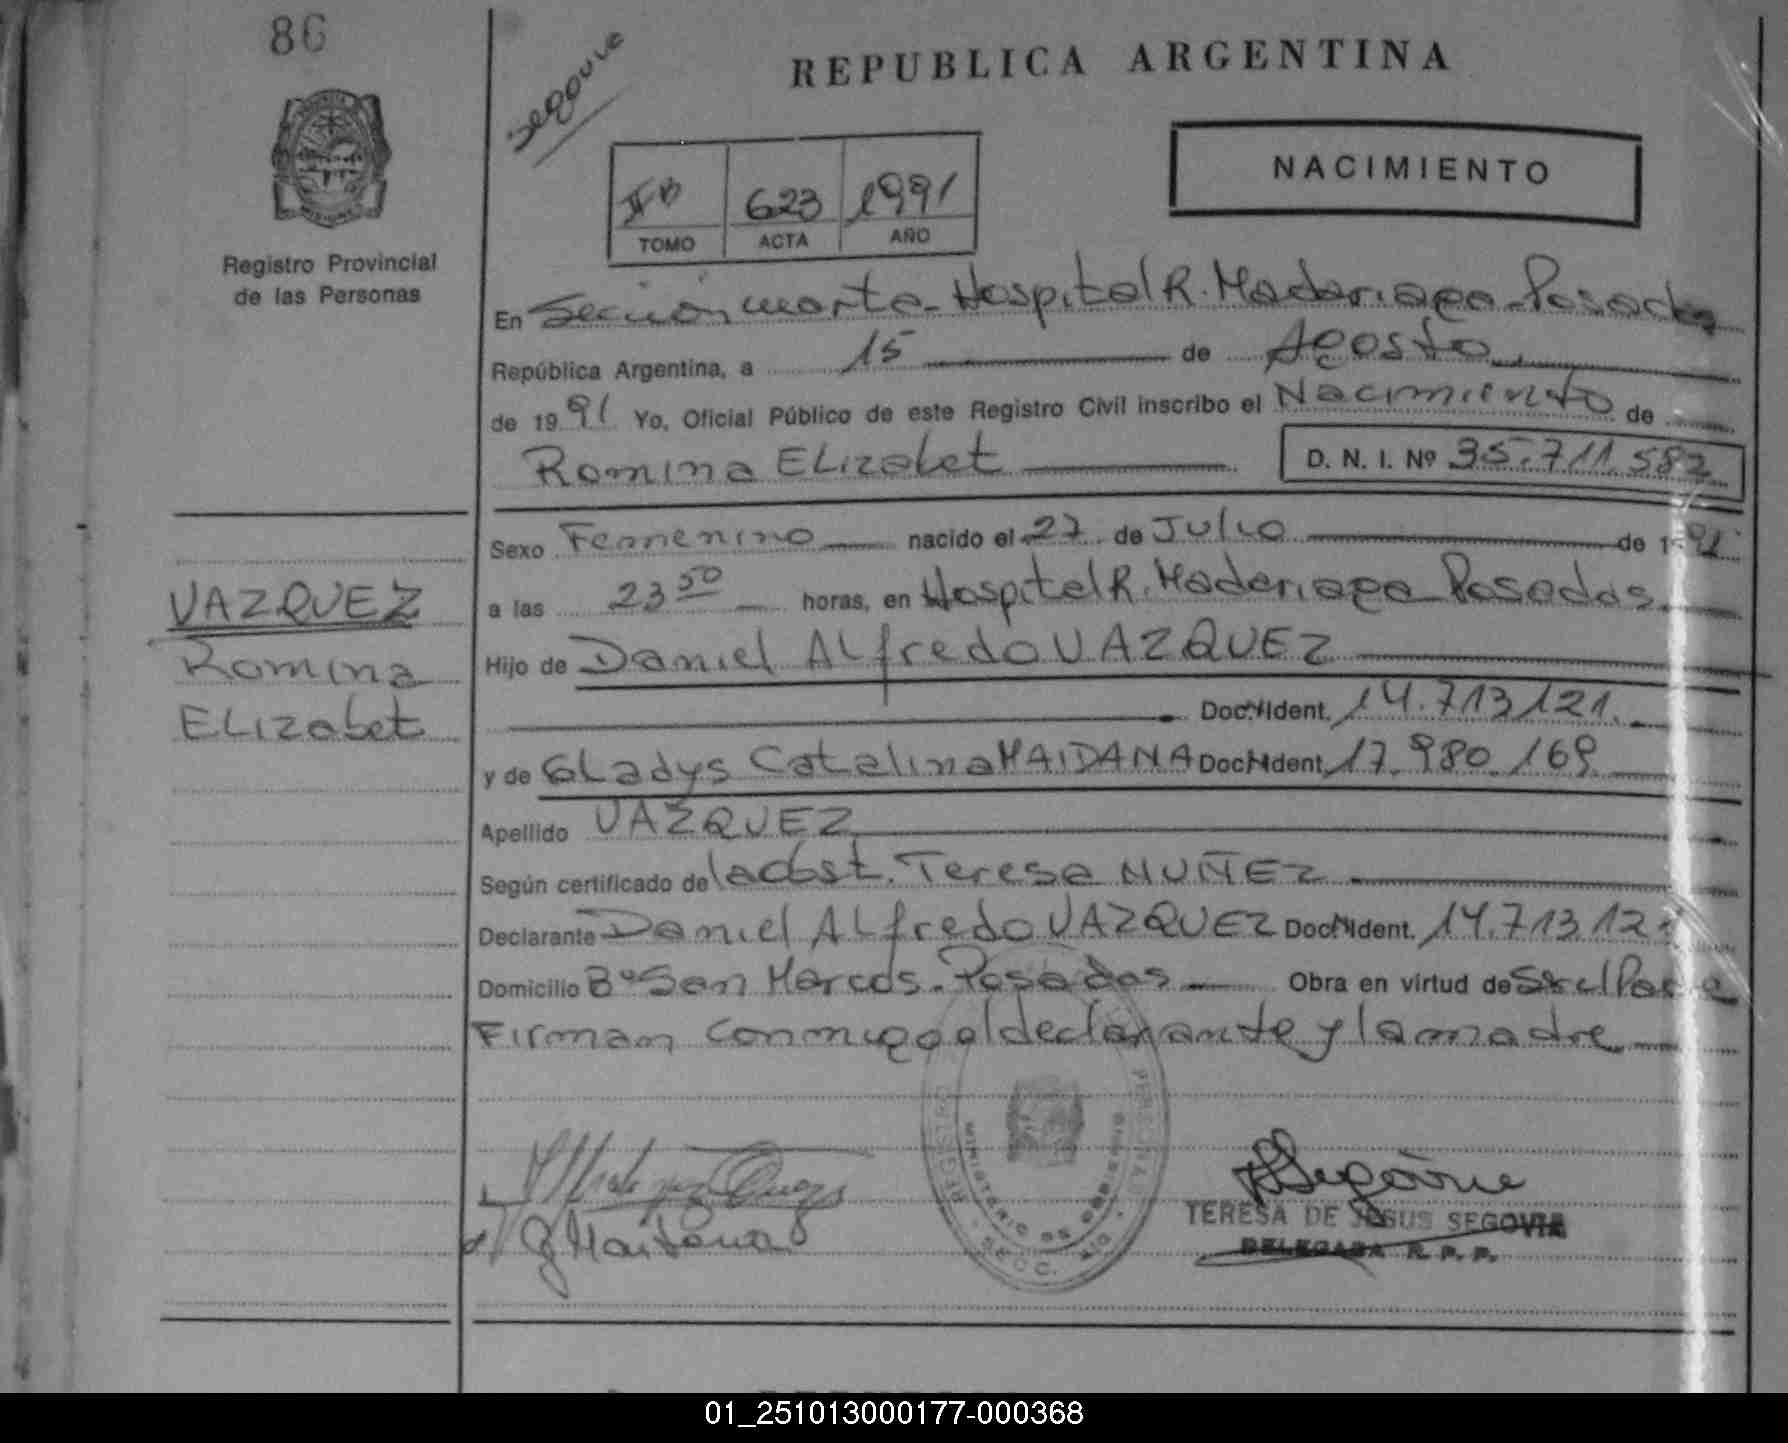 86
Segovia
REPUBLICA ARGENTINA
NACIMIENTO
623 1991
TOMO ACTA AÑO
Registro Provincial
de las Personas
En Sección cuarta - Hospital R. Madariaga - Posadas
República Argentina, a 15 de Agosto
de 1991 Yo, Oficial Público de este Registro Civil inscribo el Nacimiento de
Romina ELizabet D. N. I. Nº 35.711.582
Sexo Femenino nacido el 27 de Julio de 1991
a las 23 50 horas, en Hospital R. Madariaga Posadas
VAZQUEZ
Romina
ELizabet
Hijo de Daniel ALfredo VAZQUEZ
Doc. Ident. 14.713.121.
y de GLadys Catalina MAIDANA Doc. Ident. 17.980.169
Apellido VAZQUEZ
Según certificado de la obst. Teresa NUÑEZ
Declarante Daniel ALfredo VAZQUEZ Doc. Ident. 14.713.121
Domicilio Bº San Marcos - Posadas Obra en virtud de
Firman conmigo el declarante y la madre
REGISTRO PERSONAS
MINISTERIO DE GOBIERNO
SECC.
G Maidana
Segovia
TERESA DE JESUS SEGOVIA
DELEGADA R. P. P.
01_251013000177-000368